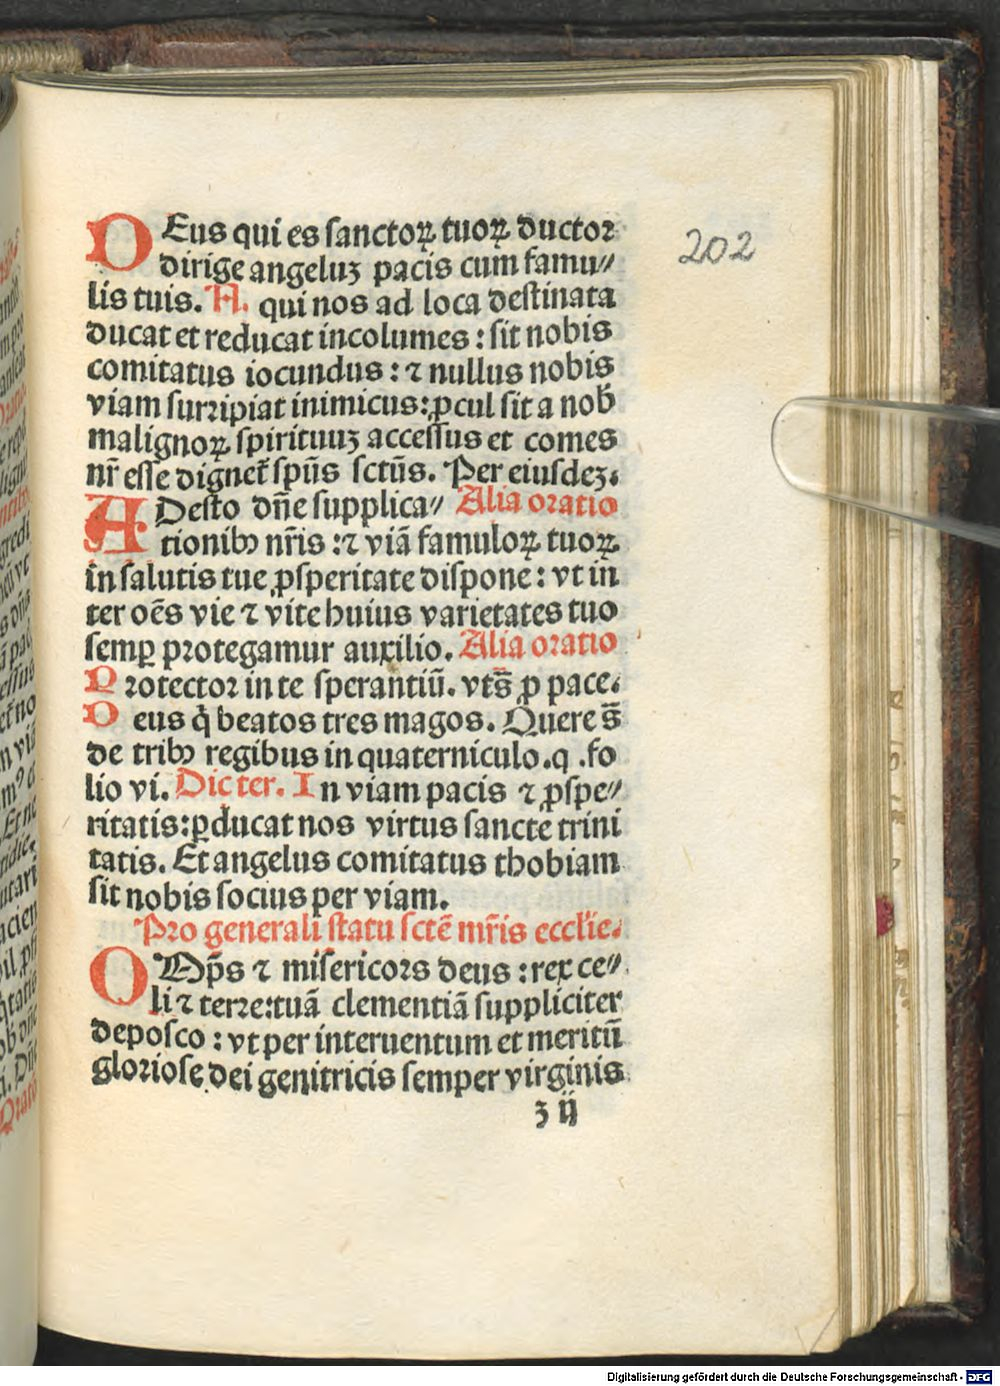 202
DEus qui es sanctoꝝ tuoꝝ ductor
dirige angeluꝫ pacis cum famu⸗
lis tuis. A. qui nos ad loca destinata
ducat et reducat incolumes: sit nobis
comitatus iocundus: ⁊ nullus nobis
viam surripiat inimicus: ꝓcul sit a nob̄
malignoꝝ spirituuꝫ accessus et comes
nr̄ esse dignet᷑ spūs sctūs. Per eiusdeꝫ.
ADesto dn̄e supplica⸗ Alia oratio
tionibꝰ nr̄is: ⁊ viā famuloꝝ tuoꝝ
in salutis tue ꝓsperitate dispone: vt in
ter oēs vie ⁊ vite huius varietates tuo
semꝑ protegamur auxilio. Alia oratio
Protector in te sperantiū. vts̄ ꝓ pace.
Deus q̇ beatos tres magos. Quere s̄
de tribꝰ regibus in quaterniculo .q. fo
lio vi. Dic ter. In viam pacis ⁊ ꝓspe⸗
ritatis: ꝑducat nos virtus sancte trini
tatis. Et angelus comitatus thobiam
sit nobis socius per viam.
Pro generali statu sctē mr̄is eccl̄ie.
OMp̄s ⁊ misericors deus: rex ce⸗
li ⁊ terre: tuā clementiā suppliciter
deposco: vt per interuentum et meritū
gloriose dei genitricis semper virginis
z ij
Digitalisierung gefördert durch die Deutsche Forschungsgemeinschaft - DFG